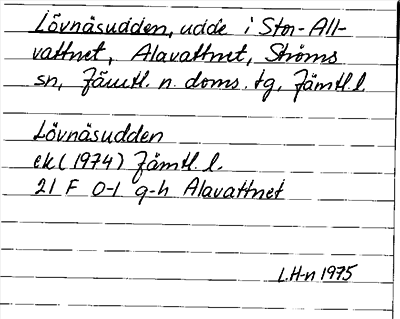 Lövnäsudden, udde i Stor-All-
vattnet, Alavattnet, Ströms
sn, Jämtl. n. doms. tg, Jämtl. l.
Lövnäsudden
ek (1974) Jämtl. l.
21 F 0-1 g-h Alavattnet
L.H-n 1975